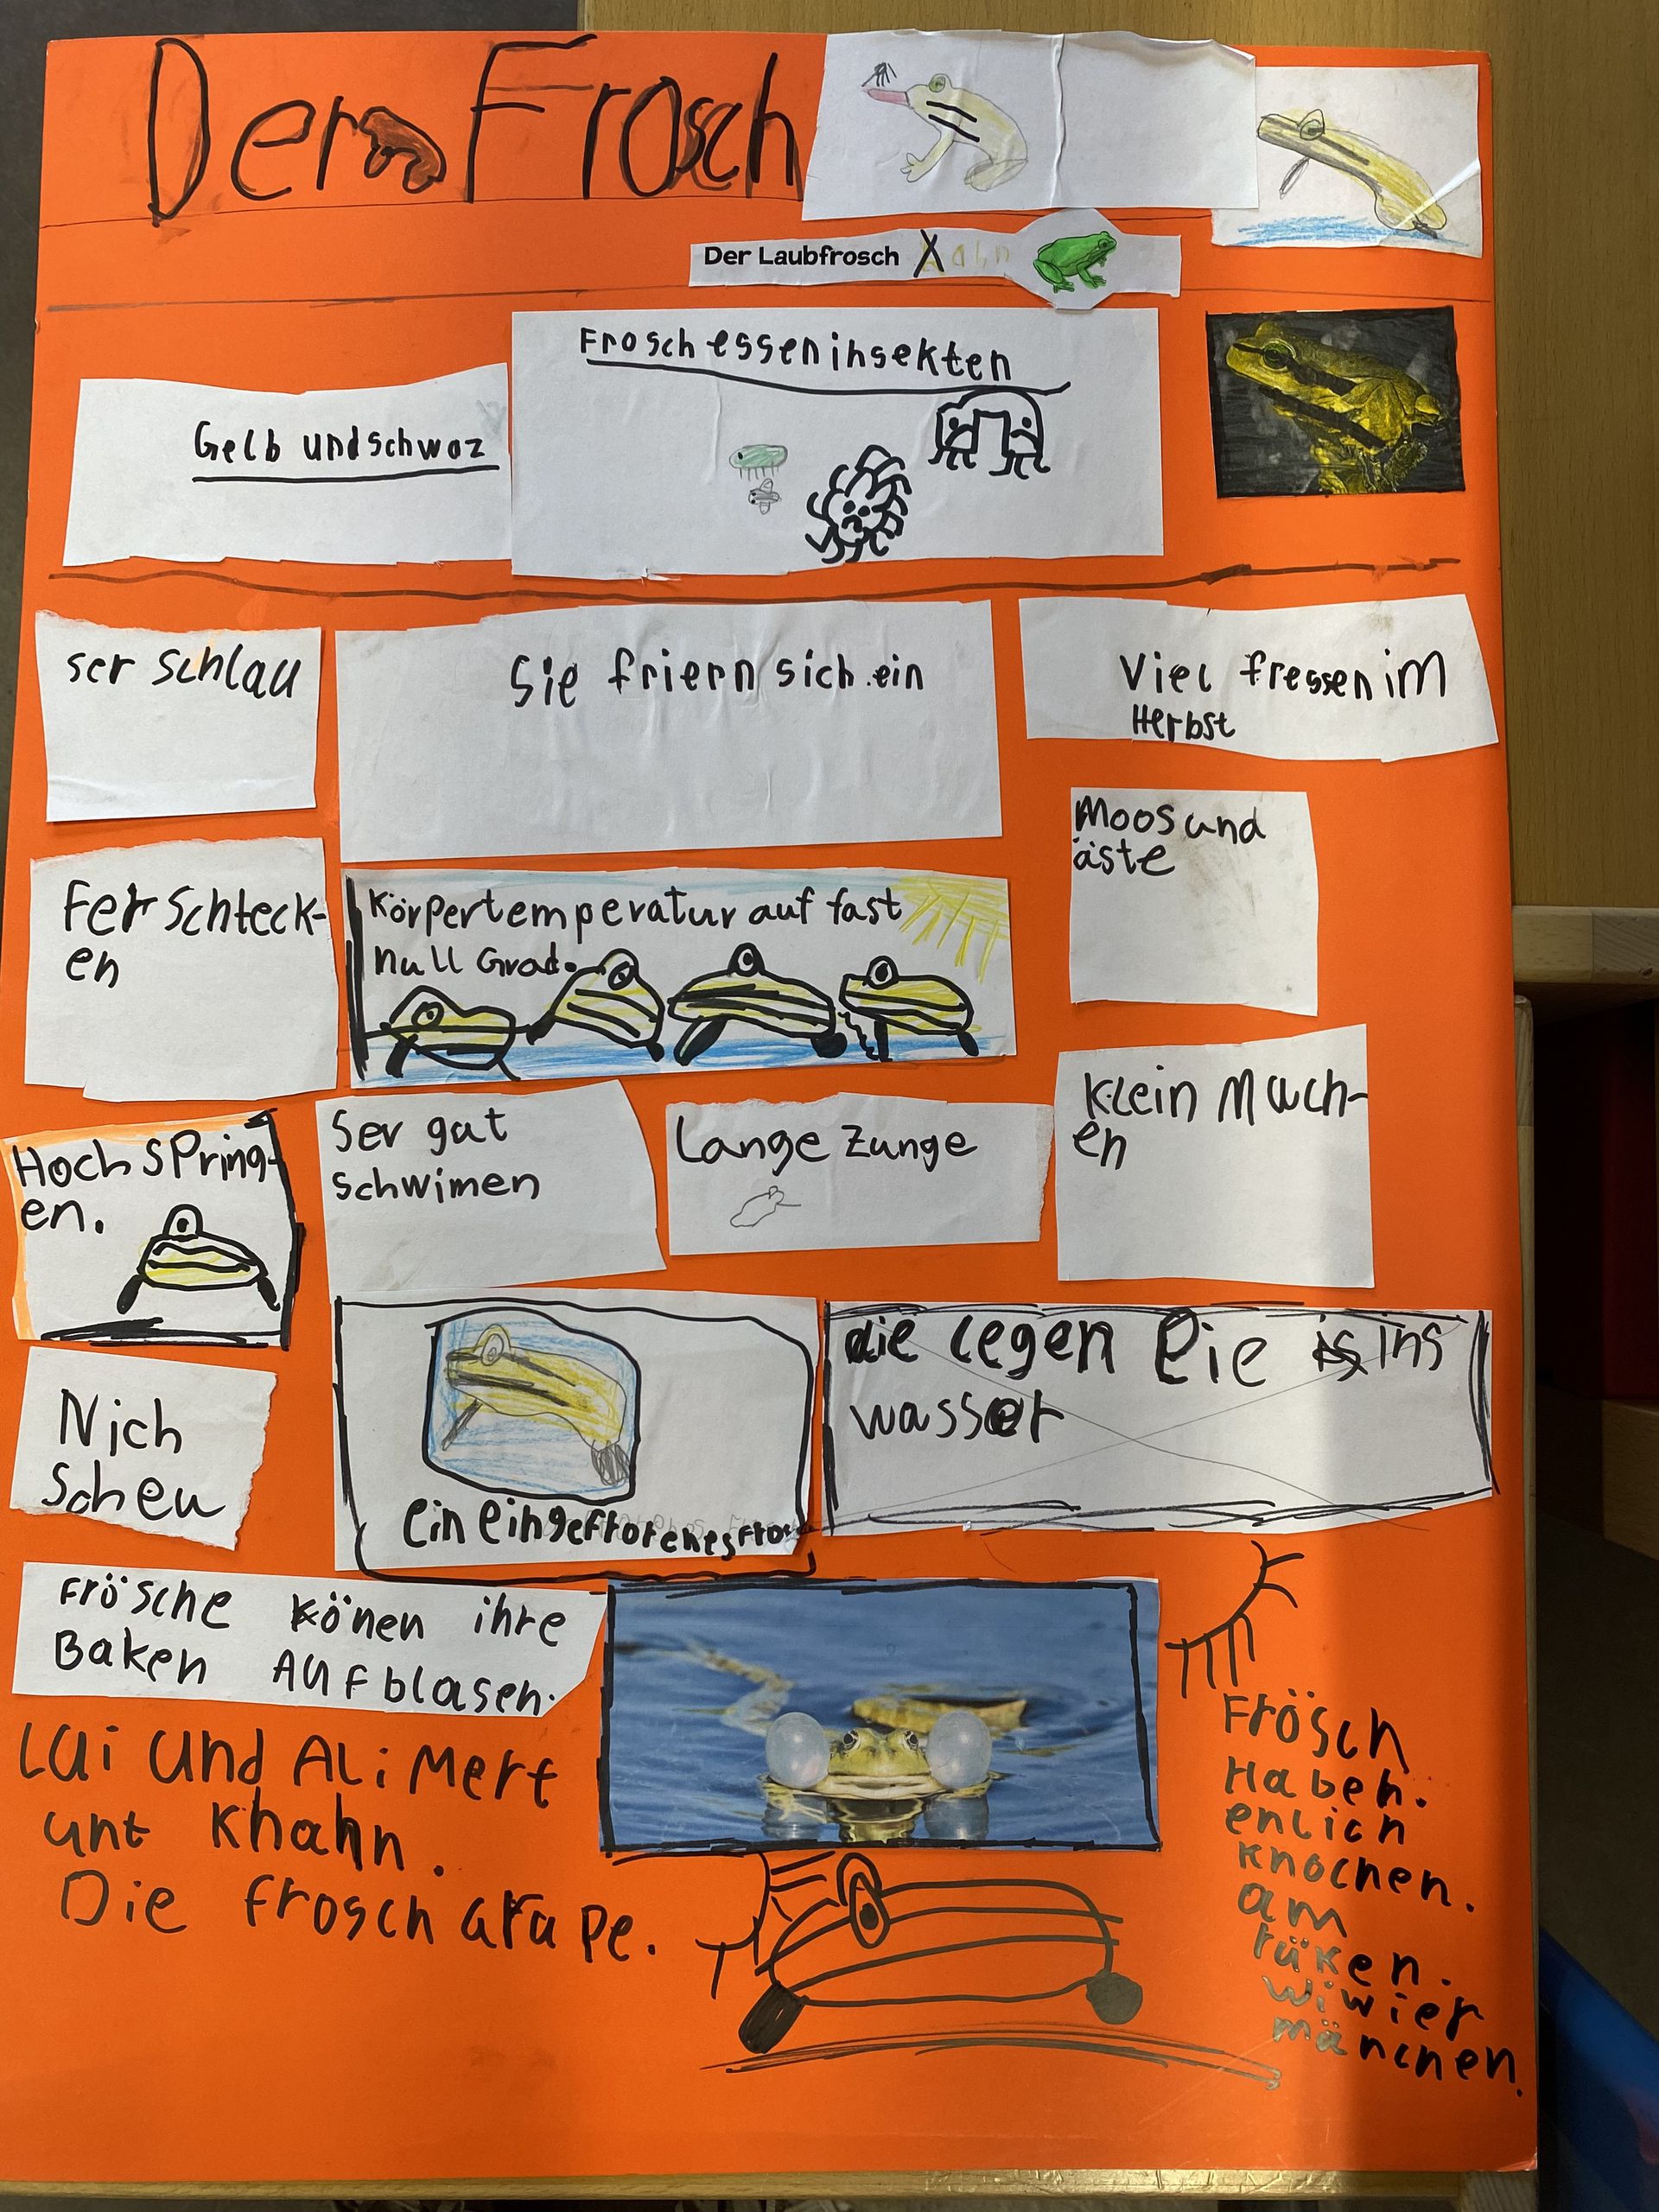 Der Frosch
Der Laubfrosch X
Frosch essen insekten
Gelb und schwoz
ser schlau
Sie friern sich ein
Viel fressen im
Herbst
Moos und
äste
Fer Schteck-
en
Körpertemperatur auf fast
null Grad.
Klein Mach-
en
Hoch spring-
en.
Ser gut
schwimen
Lange Zunge
die legen Eie ins
wasser
Nich
scheu
ein eingefrorenes fro
Frösche könen ihre
Baken Aufblasen.
Lui und Ali Mert
unt Khahn.
Die frosch grape.
Frösch
Haben.
enlich
knochen.
am
rüken.
wi wier
mänchen.